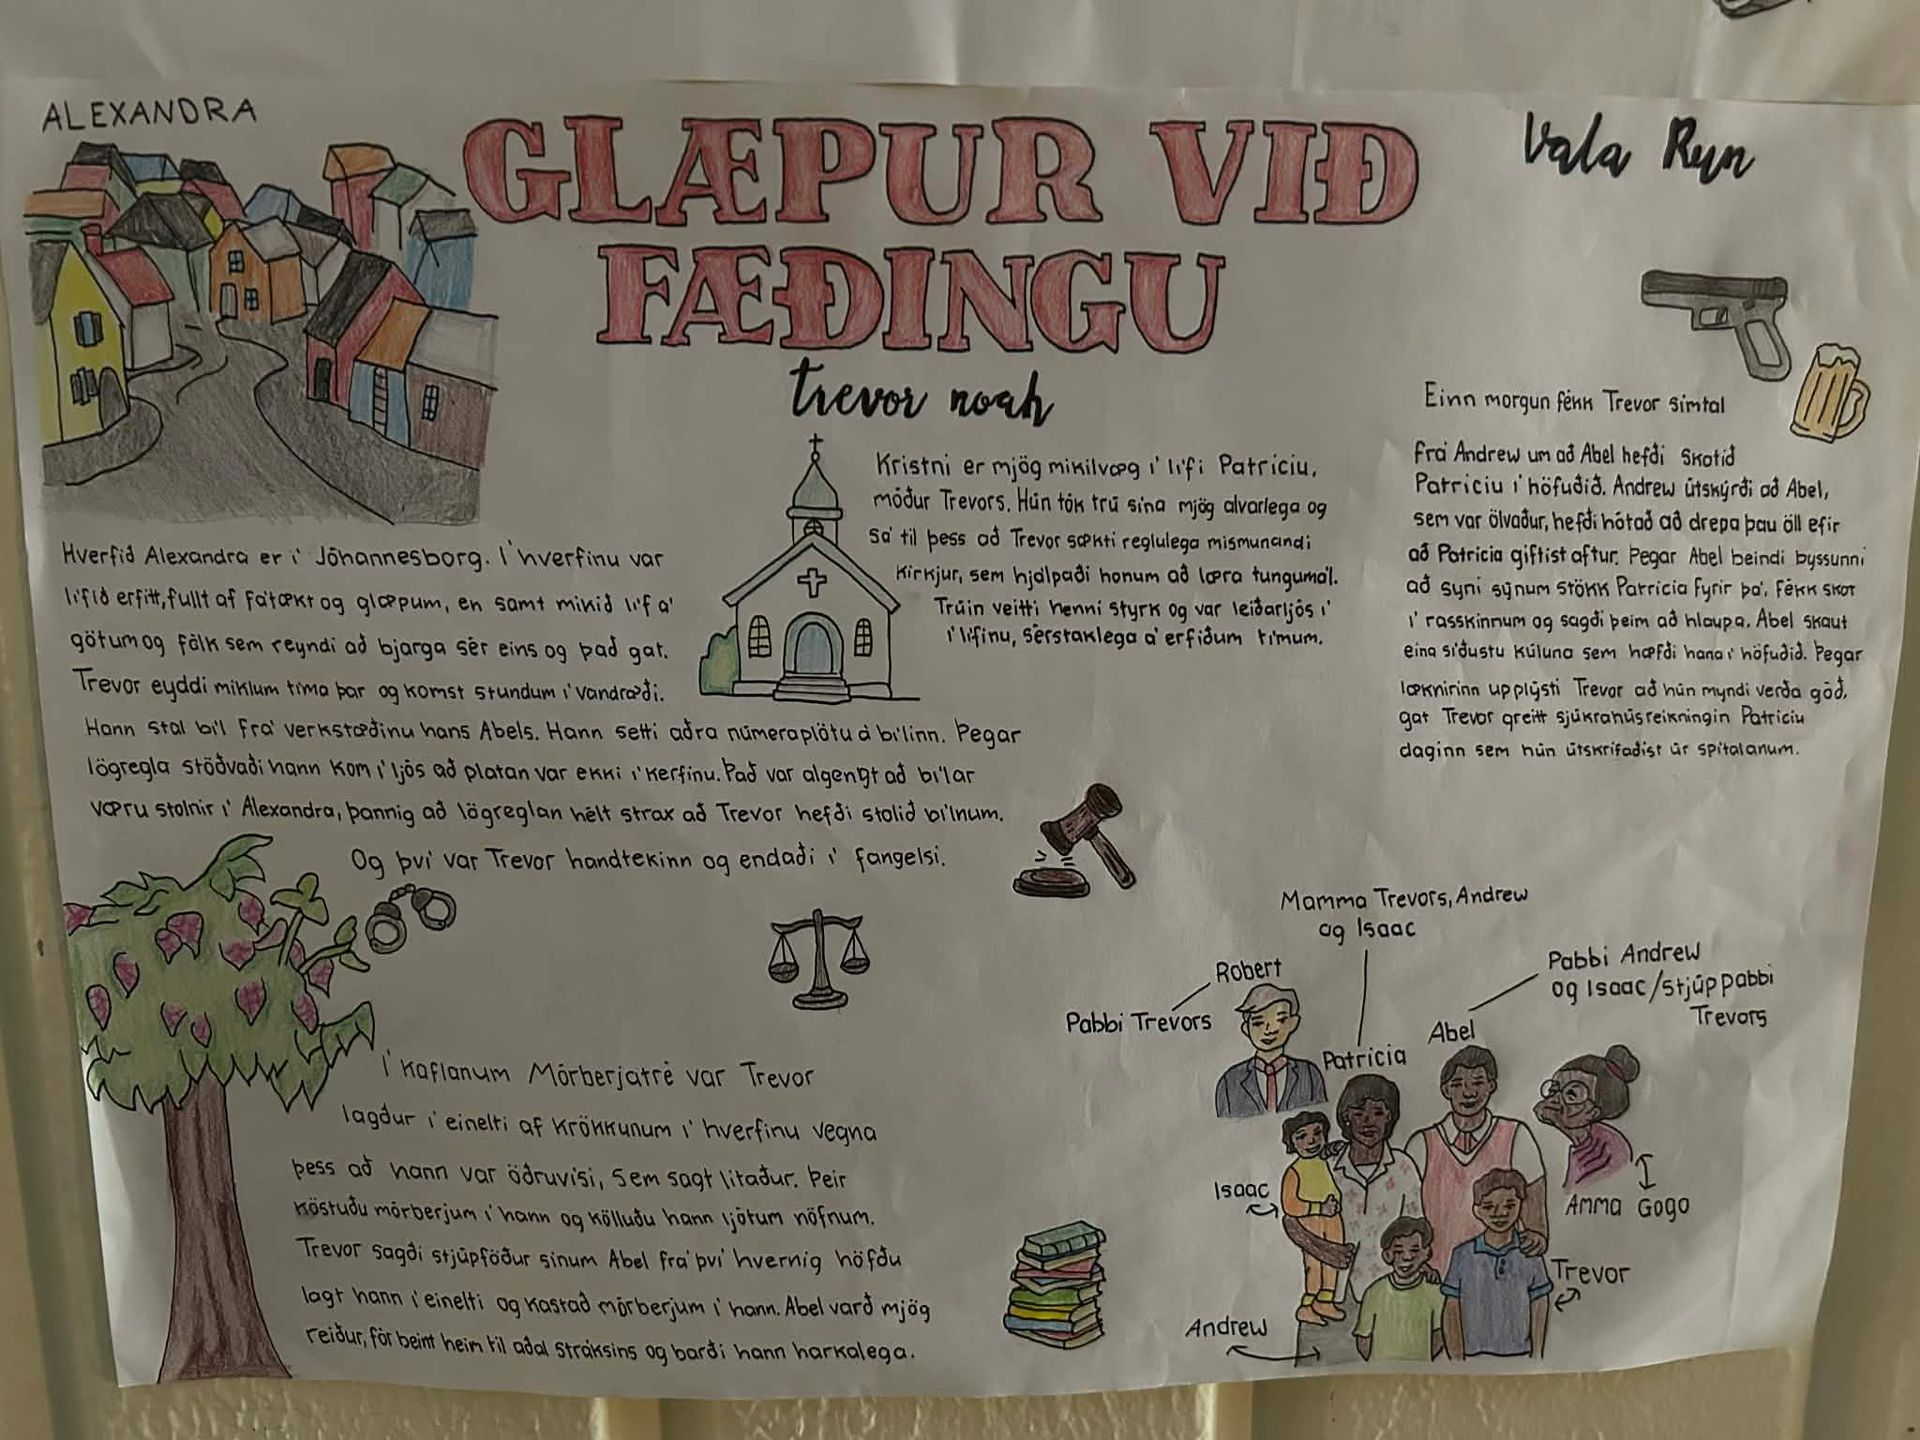 ALEXANDRA
GLÆPUR VIÐ
FÆÐINGU
trevor noah
Vala Run
Hverfið Alexandra er í Jóhannesborg. Í hverfinu var
lífið erfitt, fullt af fátækt og glæpum, en samt mikið líf á
götum og fólk sem reyndi að bjarga sér eins og það gat.
Trevor eyddi miklum tíma þar og komst stundum í vandræði.
Hann stal bíl frá verkstæðinu hans Abels. Hann setti aðra númeraplötu á bílinn. Þegar
lögregla stöðvaði hann kom í ljós að platan var ekki í kerfinu. Það var algengt að bílar
væru stolnir í Alexandra, þannig að lögreglan hélt strax að Trevor hefði stolið bílnum.
Og því var Trevor handtekinn og endaði í fangelsi.
Kristni er mjög mikilvæg í lífi Patriciu,
móður Trevors. Hún tók trú sína mjög alvarlega og
sá til þess að Trevor sækti reglulega mismunandi
kirkjur, sem hjálpaði honum að læra tungumál.
Trúin veitti henni styrk og var leiðarljós í
í lífinu, sérstaklega á erfiðum tímum.
Einn morgun fékk Trevor símtal
frá Andrew um að Abel hefði skotið
Patriciu í höfuðið. Andrew útskýrði að Abel,
sem var ölvaður, hefði hótað að drepa þau öll efir
að Patricia giftist aftur. Þegar Abel beindi byssunni
að syni sýnum stökk Patricia fyrir þá, fékk skot
í rasskinnum og sagði þeim að hlaupa. Abel skaut
eina síðustu kúluna sem hæfði hana í höfuðið. Þegar
læknirinn upplýsti Trevor að hún myndi verða góð,
gat Trevor greitt sjúkrahúsreikningin Patriciu
daginn sem hún útskrifaðist úr spítalanum.
Í kaflanum Mórberjatré var Trevor
lagður í einelti af krökkunum í hverfinu vegna
þess að hann var öðruvísi, sem sagt litaður. Þeir
köstuðu mórberjum í hann og kölluðu hann ljótum nöfnum.
Trevor sagði stjúpföður sínum Abel frá því hvernig höfðu
lagt hann í einelti og kastað mórberjum í hann. Abel varð mjög
reiður, fór beint heim til aðal stráksins og barði hann harkalega.
Mamma Trevors, Andrew
og Isaac
Robert
Pabbi Trevors
Patricia
Abel
Pabbi Andrew
og Isaac/stjúppabbi
Trevors
Isaac
Amma Gogo
Trevor
Andrew